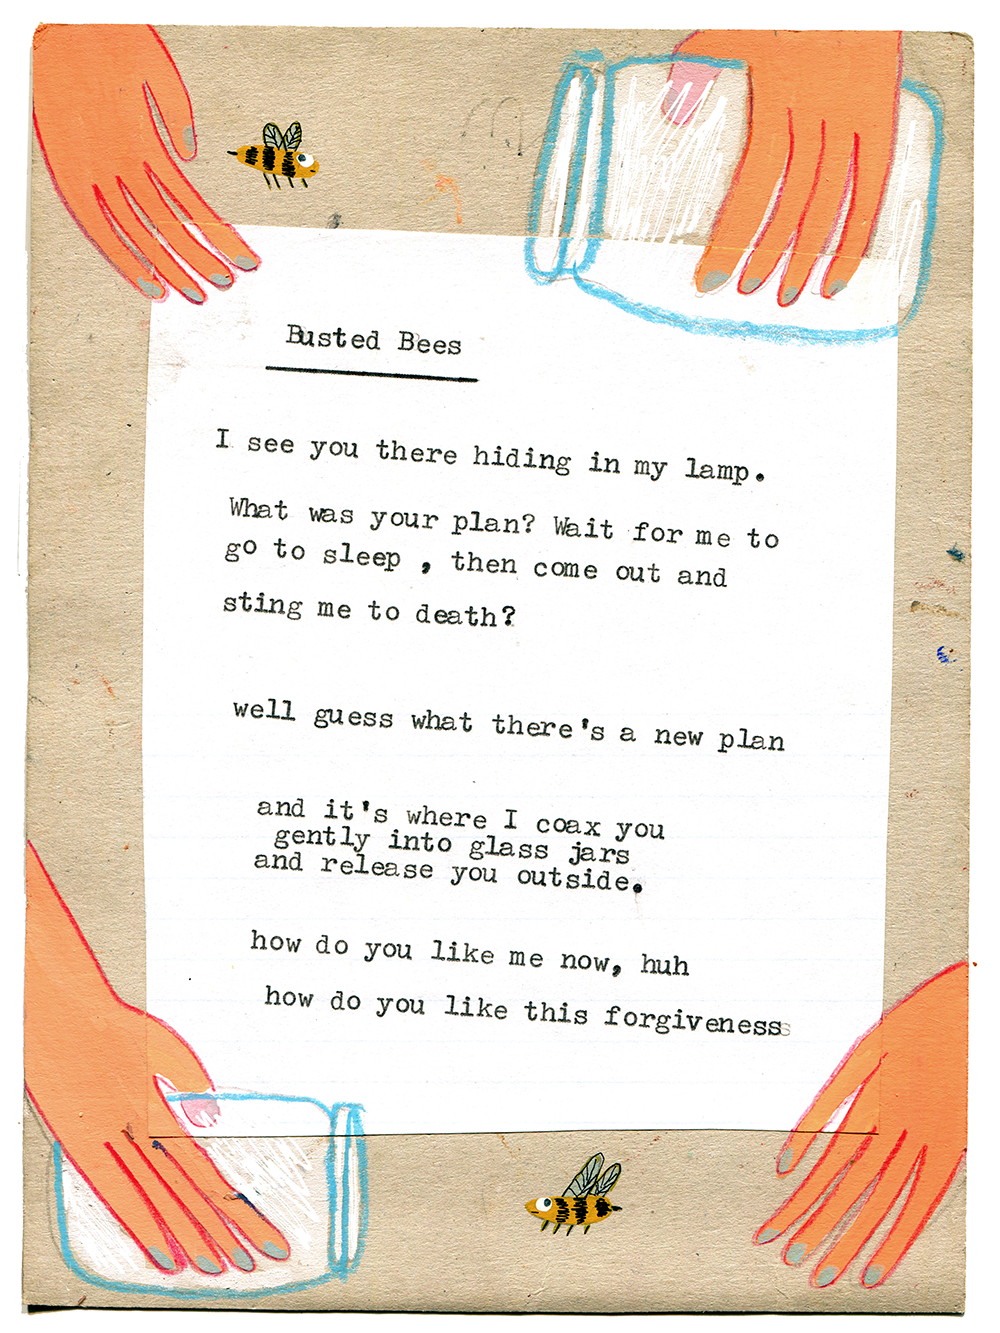 Busted Bees
I see you there hiding in my lamp.
What was your plan? Wait for me to
go to sleep , then come out and
sting me to death?
well guess what there's a new plan
and it's where I coax you
gently into glass jars
and release you outside.
how do you like me now, huh
how do you like this forgiveness